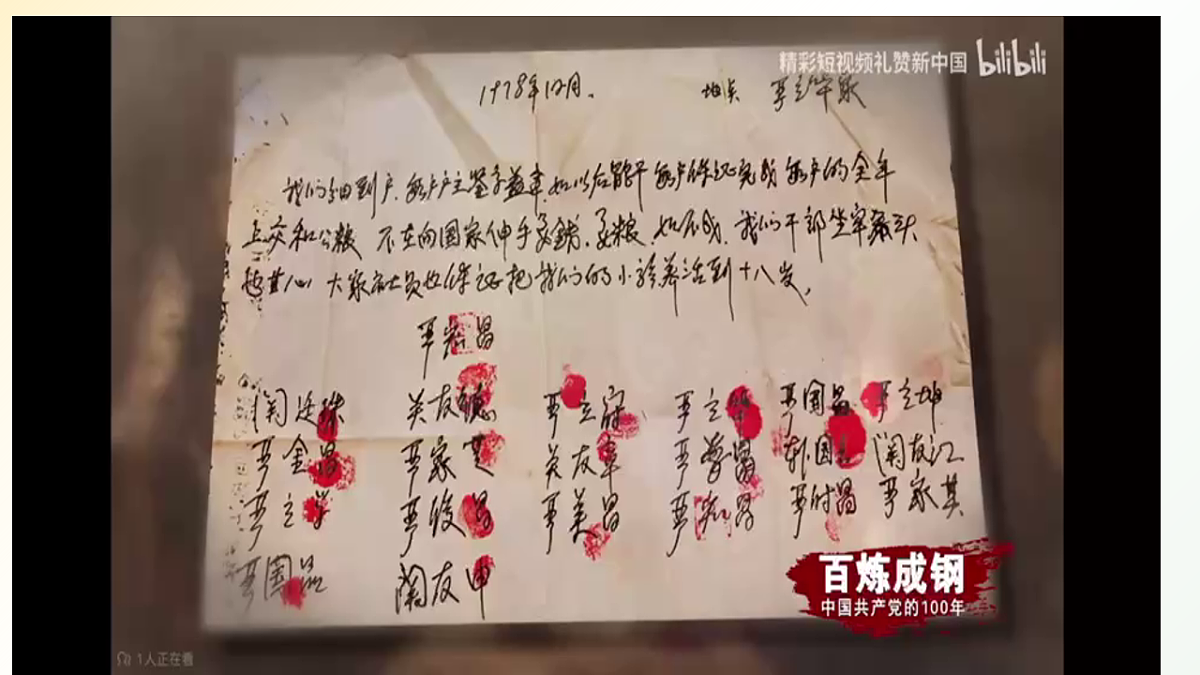 精彩短视频礼赞新中国 bilibili
1978年12月。 地点 严立华家
我们分田到户,每户户主签字盖章,如以后能干每户保证完成每户的全年
上交和公粮 不在向国家伸手要钱、要粮,如不成,我们干部坐牢杀头
也甘心 大家社员也保证把我们的小孩养活到十八岁。
严宏昌
関廷珠 关友德 严立符 严立华 严国昌 严立坤
严金昌 严家芝 关友章 严学昌 韩国云 関友江
严立学 严俊昌 严美昌 严宏昌 严付昌 严家其
严国品 関友申
百炼成钢
中国共产党的100年
1人正在看